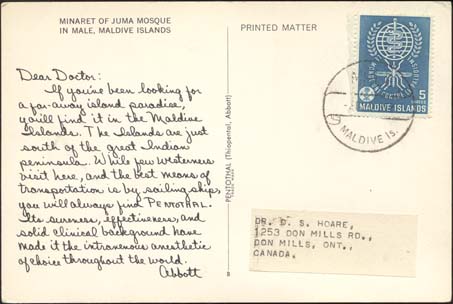 MINARET OF JUMA MOSQUE
IN MALE, MALDIVE ISLANDS
Dear Doctor:
If you've been looking for
a far-away island paradise,
you'll find it in the Maldive
Islands. The Islands are just
south of the great Indian
peninsula. While few westerners
visit here, and the best means of
transportation is by sailing ships,
you will always find PENTOTHAL.
Its sureness, effectiveness, and
solid clinical background have
made it the intravenous anesthetic
of choice throughout the world.
Abbott
PENTOTHAL (Thiopental, Abbott)
PRINTED MATTER
5
MALDIVE ISLANDS
MALDIVE Is.
DR. D. S. HOARE,
1253 DON MILLS RD.,
DON MILLS, ONT.,
CANADA.